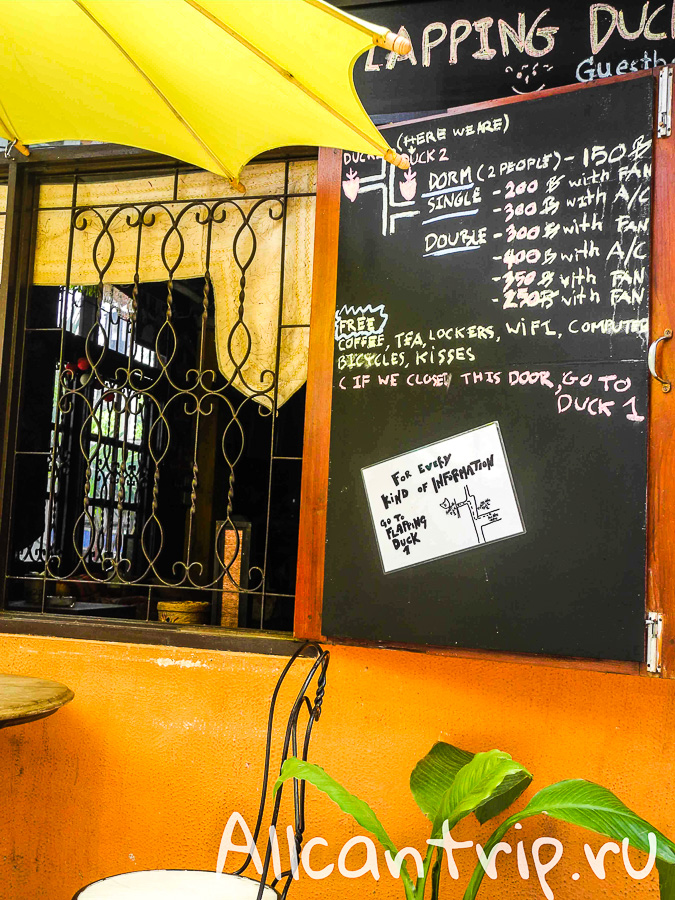 FLAPPING DUCK
Guesth
(HERE WE ARE)
DUCK 2
DORM (2 PEOPLE) - 150 ฿
SINGLE - 200 ฿ with FAN
- 300 ฿ with A/C
DOUBLE - 300 ฿ with FAN
- 400 ฿ with A/C
- 350 ฿ with FAN
- 250 ฿ with FAN
FREE
COFFEE, TEA, LOCKERS, WiFi, COMPUTER
BICYCLES, KISSES
( IF WE CLOSED THIS DOOR, GO TO
DUCK 1
FOR EVERY
KIND OF INFORMATION
GO TO
FLAPPING
DUCK
1
Allcantrip.ru